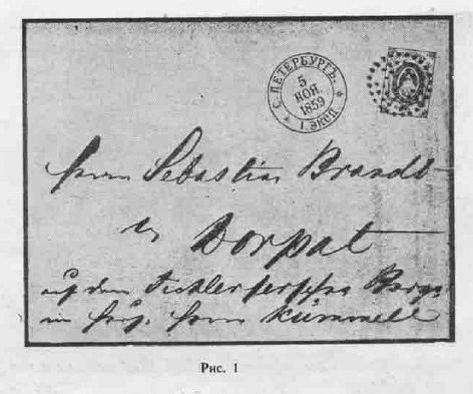 С. ПЕТЕРБУРГЪ.
5
НОЯ.
1859
1. ЭКСП.
Herrn Sebastian Brandt
in Dorpat
auf dem Berge
im Herrn Kümmell
Рис. 1